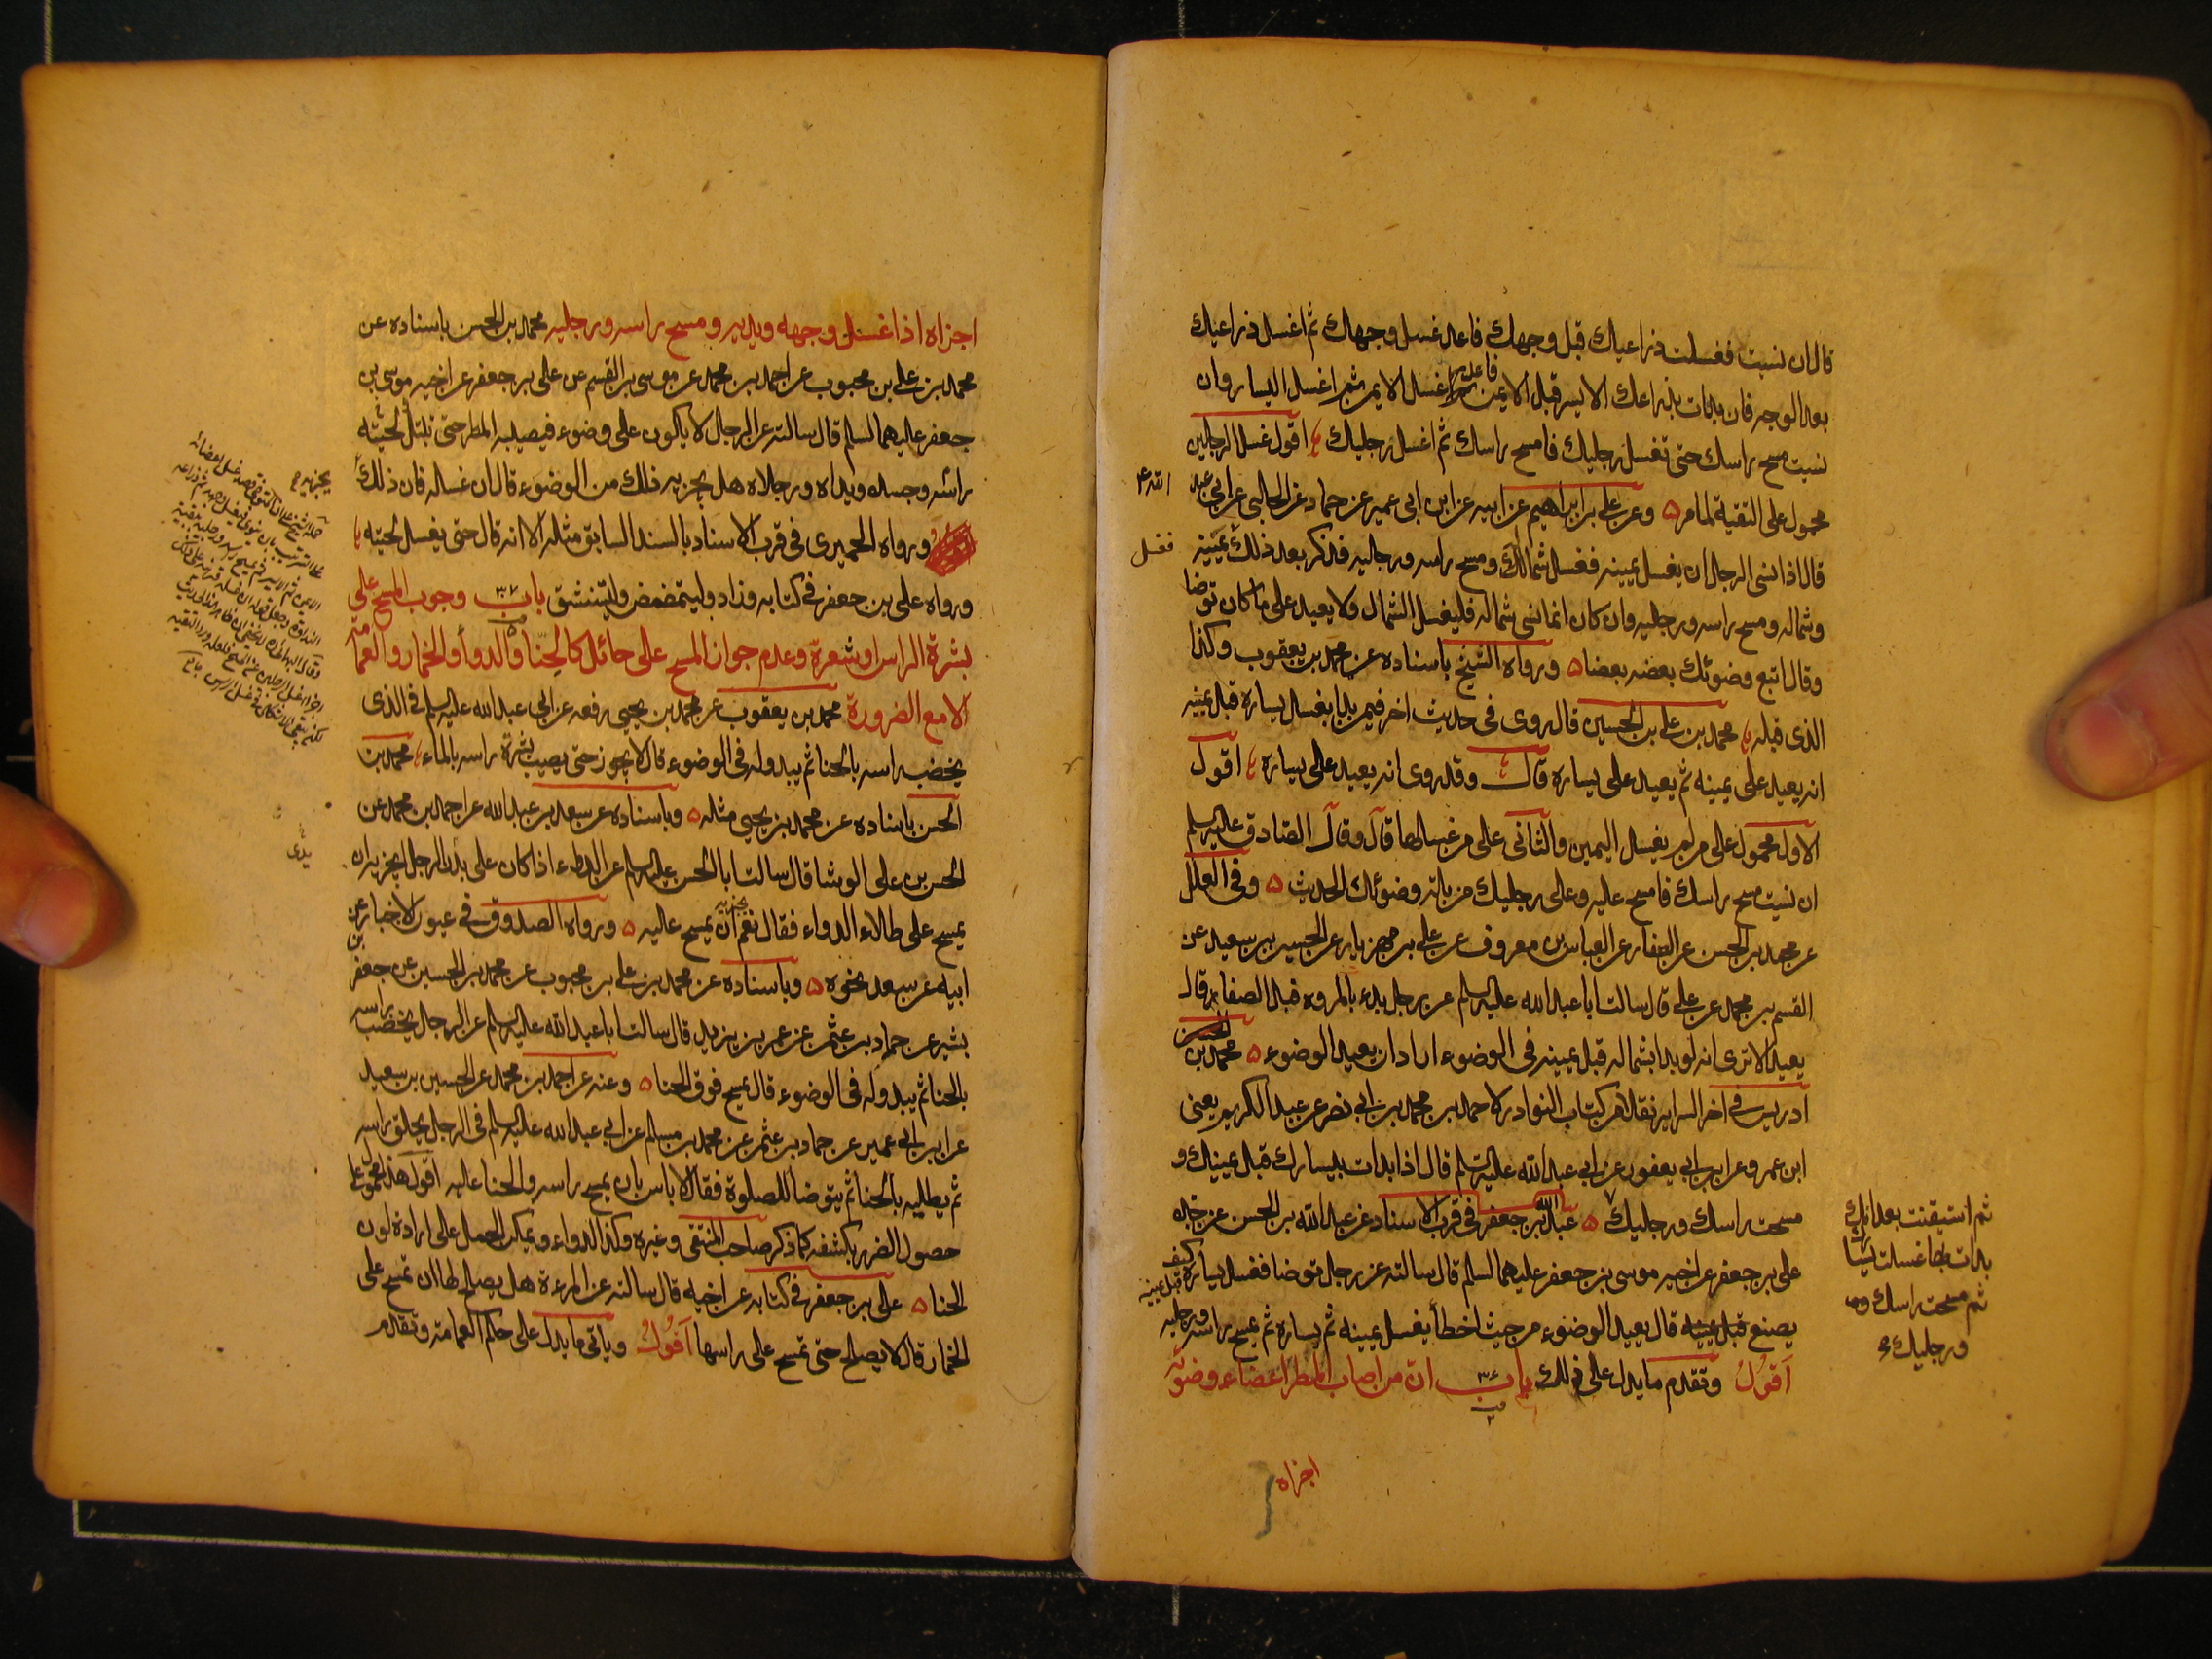 قال ان نسيت فغسلت ذراعيك قبل وجهك فاعد غسل وجهك ثم اغسل ذراعيك
بعد الوجه فان بدات بذراعك الايسر قبل الايمن فاعد غسل الايمن ثم اغسل اليسار وان
نسيت مسح راسك حتى تغسل رجليك فامسح راسك ثم اغسل رجليك اقول غسل الرجلين
محمول على التقية لما مر وعن علي بن ابراهيم عن ابيه عن ابن ابي عمير عن حماد عن الحلبي عن ابي عبد
الله ع
قال اذا نسى الرجل ان يغسل يمينه فغسل شماله ومسح راسه ورجليه فذكر بعد ذلك غسل يمينه
وشماله ومسح راسه ورجليه وان كان انما نسى شماله فليغسل الشمال ولا يعيد على ما كان توضا
وقال اتبع وضوئك بعضه بعضا ورواه الشيخ باسناده عن محمد بن يعقوب وكذا
الذى قبله محمد بن علي بن الحسين قال روى فى حديث اخر فيمن بدا بغسل يساره قبل يمينه
انه يعيد على يمينه ثم يعيد على يساره قال وقد روى انه يعيد على يساره اقول
الاول محمول على من لم يغسل اليمين والثانى على من غسلها قال وقال الصادق عليه السلم
ان نسيت مسح راسك فامسح عليه وعلى رجليك من بلة وضوئك الحديث وفى العلل
عن محمد بن الحسن عن الصفار عن العباس بن معروف عن علي بن مهزيار عن الحسين بن سعيد عن
القسم بن محمد عن علي قال سالت ابا عبد الله عليه السلم عن رجل بدء بالمروه قبل الصفا قال
يعيد الا ترى انه لو بدا بشماله قبل يمينه فى الوضوء اراد ان يعيد الوضوء محمد بن
ادريس في اخر السراير نقلا من كتاب النوادر لاحمد بن محمد بن ابي نصر عن عبد الكريم يعنى
ابن عمرو عن ابن ابي يعفور عن ابي عبد الله عليه السلم قال اذا بدات بيسارك قبل يمينك و
مسحت راسك ورجليك
ثم استيقنت بعد انك
بدات بها غسلت يسارك
ثم مسحت راسك
ورجليك
عبد الله بن جعفر فى قرب الاسناد عن عبد الله بن الحسن عن جده
على بن جعفر عن اخيه موسى بن جعفر عليهما السلم قال سالته عن رجل توضا فغسل يساره قبل يمينه كيف
يصنع قال يعيد الوضوء من حيث اخطأ يغسل يمينه ثم يساره ثم يمسح راسه ورجليه
اقول وتقدم ما يدل على ذلك باب ٣٦ ان من اصاب المطر اعضاء وضوئه
اجزاه
اجزاه اذا غسل وجهه ويديه ومسح راسه ورجليه محمد بن الحسن باسناده عن
محمد بن علي بن محبوب عن احمد بن محمد عن موسى بن القسم عن على بن جعفر عن اخيه موسى بن
جعفر عليهما السلم قال سالته عن الرجل لا يكون على وضوء فيصيبه المطر حتى يبتل لحيته
راسه وجسده ويداه ورجلاه هل يجزيه ذلك من الوضوء قال ان غسله فان ذلك
يجزيه
ورواه الحميرى فى قرب الاسناد بالسند السابق مثله الا انه قال حتى يغسل لحيته
ورواه على بن جعفر في كتابه وزاد وليتمضمض وليتنشق باب ٣٧ وجوب المسح على
بشرة الراس او شعره وعدم جواز المسح على حائل كالحنا والدوأ والخمار والعمامة
الا مع الضرورة محمد بن يعقوب عن محمد بن يحيى رفعه عن ابى عبد الله عليه السلم فى الذى
يخضب راسه بالحنا ثم يبدو له فى الوضوء قال لا يجوز حتى يصيب بشرة راسه بالماء محمد بن
الحسن باسناده عن محمد بن يحيى مثله وباسناده عن سعد بن عبد الله عن احمد بن محمد عن
الحسن بن على الوشا قال سالت ابا الحسن عليه السلم عن الدواء اذا كان على يدى الرجل ايجزيه ان
يمسح على طلاء الدواء فقال نعم يجزيه ان يمسح عليه ورواه الصدوق في عيون الاخبار عن
ابيه عن سعد نحوه وباسناده عن محمد بن علي بن محبوب عن محمد بن الحسين عن جعفر بن
بشير عن حماد بن عثمن عن عمر بن يزيد قال سالت ابا عبد الله عليه السلم عن الرجل يخضب راسه
بالحنا ثم يبدو له فى الوضوء قال يمسح فوق الحنا وعنه عن احمد بن محمد عن الحسين بن سعيد
عن ابن ابى عمير عن حماد بن عثمن عن محمد بن مسلم عن ابي عبد الله عليه السلم فى الرجل يحلق راسه
ثم يطليه بالحنا ثم يتوضا للصلوة فقال لا باس بان يمسح راسه والحنا عليه اقول هذا محمول على
حصول الضرر بكشفه كما ذكر صاحب المنتقى وغيره وكذا الدواء ويمكن الحمل على ارادة لون
الحنا على بن جعفر فى كتابه عن اخيه قال سالته عن المرءة هل يصلح لها ان تمسح على
الخمار قال لا يصلح حتى تمسح على راسها اقول وياتى ما يدل على حكم العمامة وتقدم